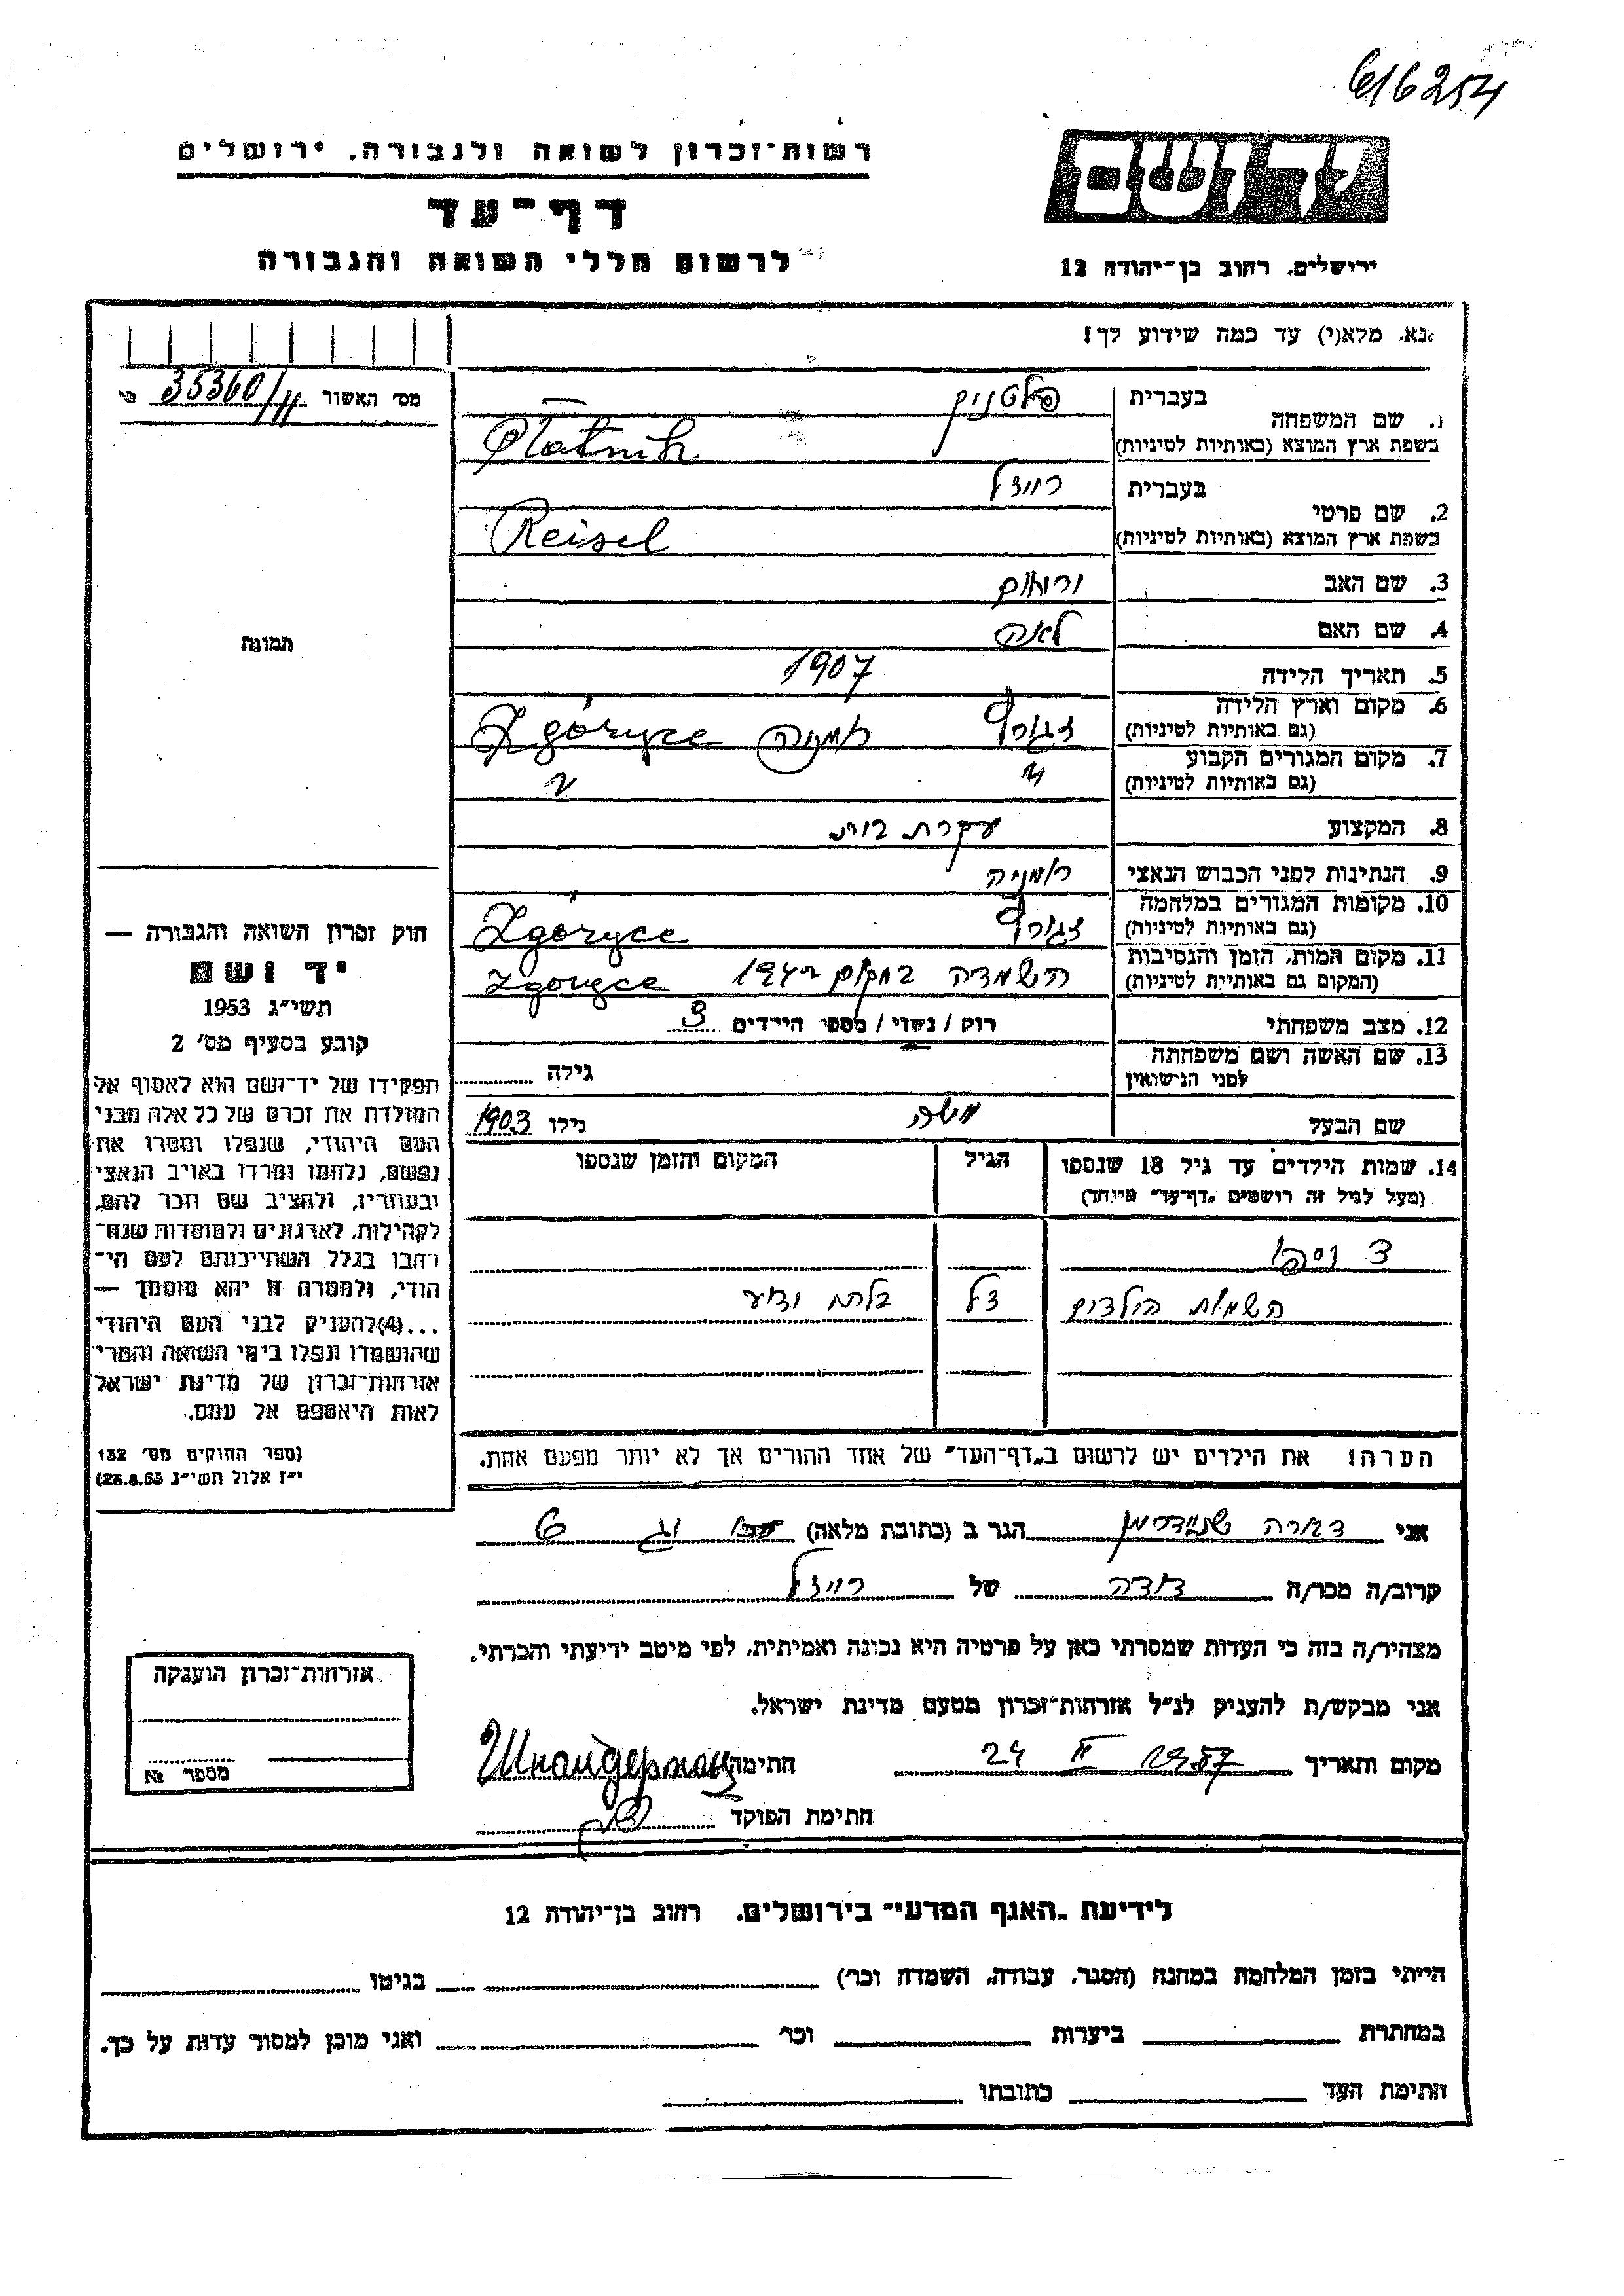 616254
רשות־זכרון לשואה ולגבורה. ירושלים
דף־עד
לרשום חללי השואה והגבורה
יד ושם
ירושלים. רחוב בן־יהודה 12
נא. מלא(י) עד כמה שידוע לך!
מס׳ האשור 35360/11
1. שם המשפחה
בעברית פלטניק
בשפת ארץ המוצא (באותיות לטיניות) Platnik
2. שם פרטי
בעברית רייזל
בשפת ארץ המוצא (באותיות לטיניות) Reisel
3. שם האב
4. שם האם לאה
5. תאריך הלידה 1907
6. מקום וארץ הלידה
(גם באותיות לטיניות) רומניה Zgóryce
7. מקום המגורים הקבוע
(גם באותיות לטיניות) " "
8. המקצוע עקרת בית
9. הנתינות לפני הכבוש הנאצי רומניה
10. מקומות המגורים במלחמה
(גם באותיות לטיניות) Zgóryce
11. מקום המות, הזמן והנסיבות
(המקום גם באותיות לטיניות) השמדה במקום Zgoryce
12. מצב משפחתי רוק / נשוי / מספר הילדים 3
13. שם האשה ושם משפחתה
לפני הנישואין גילה
שם הבעל משה גילו 1903
14. שמות הילדים עד גיל 18 שנספו הגיל המקום והזמן שנספו
(מעל לגיל זה רושמים „דף־עד״ מיוחד)
3 נספו
השמות הילדים בלתי ידוע
הערה! את הילדים יש לרשום ב„דף־העד״ של אחד ההורים אך לא יותר מפעם אחת.
תמונה
חוק זכרון השואה והגבורה —
יד ושם
תשי״ג 1953
קובע בסעיף מס׳ 2
תפקידו של יד־ושם הוא לאסוף אל
המולדת את זכרם של כל אלה מבני
העם היהודי, שנפלו ומסרו את
נפשם, נלחמו ומרדו באויב הנאצי
ובעוזריו, ולהציב שם וזכר להם,
לקהילות, לארגונים ולמוסדות שנח־
רבו בגלל השתייכותם לעם הי־
הודי, ולמטרה זו יהא מוסמך —
...(4)להעניק לבני העם היהודי
שהושמדו ונפלו בימי השואה והמרי־
אזרחות־זכרון של מדינת ישראל
לאות היאספם אל עמם.
(ספר החוקים מס׳ 132
י״ז אלול תשי״ג 28.8.53)
אני שניידרמן הגר ב (כתובת מלאה) 6
קרוב/ה מכר/ה דודה של רייזל
מצהיר/ה בזה כי העדות שמסרתי כאן על פרטיה היא נכונה ואמיתית, לפי מיטב ידיעתי והכרתי.
אני מבקש/ת להעניק לנ״ל אזרחות־זכרון מטעם מדינת ישראל.
מקום ותאריך 24 II 1957 חתימה Шнайдерман
חתימת הפוקד
אזרחות־זכרון הוענקה
מספר №
לידיעת „האגף המדעי״ בירושלים. רחוב בן־יהודה 12
הייתי בזמן המלחמה במחנה (הסגר, עבודה, השמדה וכר׳) בגיטו
במחתרת ביערות וכר ואני מוכן למסור עדות על כך.
חתימת העד כתובתו